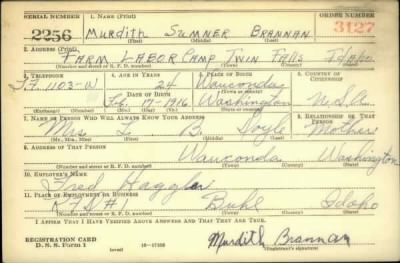 SERIAL NUMBER 1. NAME (Print) ORDER NUMBER
2256 Murdith Sumner Brannan 3127
(First) (Middle) (Last)
2. ADDRESS (Print)
FARM LABOR CAMP Twin Falls Idaho
(Number and street or R. F. D. number) (Town) (County) (State)
3. TELEPHONE 4. AGE IN YEARS 5. PLACE OF BIRTH 6. COUNTRY OF CITIZENSHIP
T.F. 1103-W 24 Wauconda
DATE OF BIRTH (Town or county)
Feb. 17-1916 Washington U.S.A.
(Exchange) (Number) (Mo.) (Day) (Yr.) (State or country)
7. NAME OF PERSON WHO WILL ALWAYS KNOW YOUR ADDRESS 8. RELATIONSHIP OF THAT PERSON
Mrs L. B. Doyle Mother
(Mr., Mrs., Miss) (First) (Middle) (Last)
9. ADDRESS OF THAT PERSON
Wauconda Washington
(Number and street or R. F. D. number) (Town) (County) (State)
10. EMPLOYER'S NAME
Fred
11. PLACE OF EMPLOYMENT OR BUSINESS
#1 Buhl Idaho
(Number and street or R. F. D. number) (Town) (County) (State)
I AFFIRM THAT I HAVE VERIFIED ABOVE ANSWERS AND THAT THEY ARE TRUE.
REGISTRATION CARD
D. S. S. Form 1 (over) 16-17105
Murdith Brannan
(Registrant's signature)